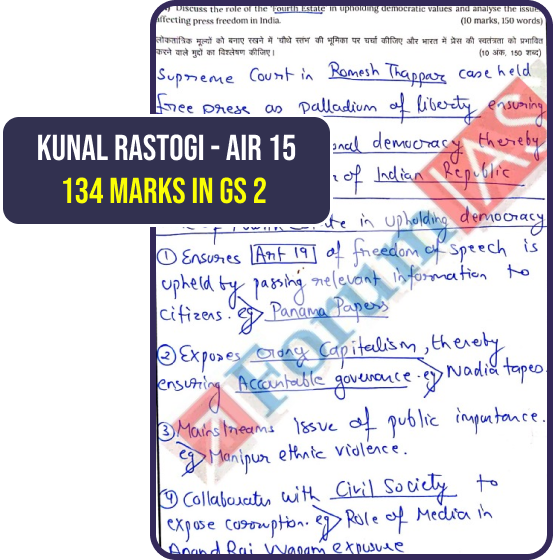 Discuss the role of the 'Fourth Estate' in upholding democratic values and analyse the issues
affecting press freedom in India. (10 marks, 150 words)
लोकतांत्रिक मूल्यों को बनाए रखने में 'चौथे स्तंभ' की भूमिका पर चर्चा कीजिए और भारत में प्रेस की स्वतंत्रता को प्रभावित
करने वाले मुद्दों का विश्लेषण कीजिए। (10 अंक, 150 शब्द)
Supreme Court in Romesh Thappar case held
free press as palladium of liberty ensuring
KUNAL RASTOGI - AIR 15
134 MARKS IN GS 2
democracy thereby
of Indian Republic
in upholding democracy
① Ensures Art 19 of freedom of speech is
upheld by passing relevant information to
citizens. eg> Panama Papers
② Exposes crony Capitalism, thereby
ensuring Accountable governance. eg> Nadia tapes.
③ Mainstreams issue of public importance.
eg> Manipur ethnic violence.
④ Collaborates with Civil Society to
expose corruption. eg> Role of Media in
exposure
Forum IAS